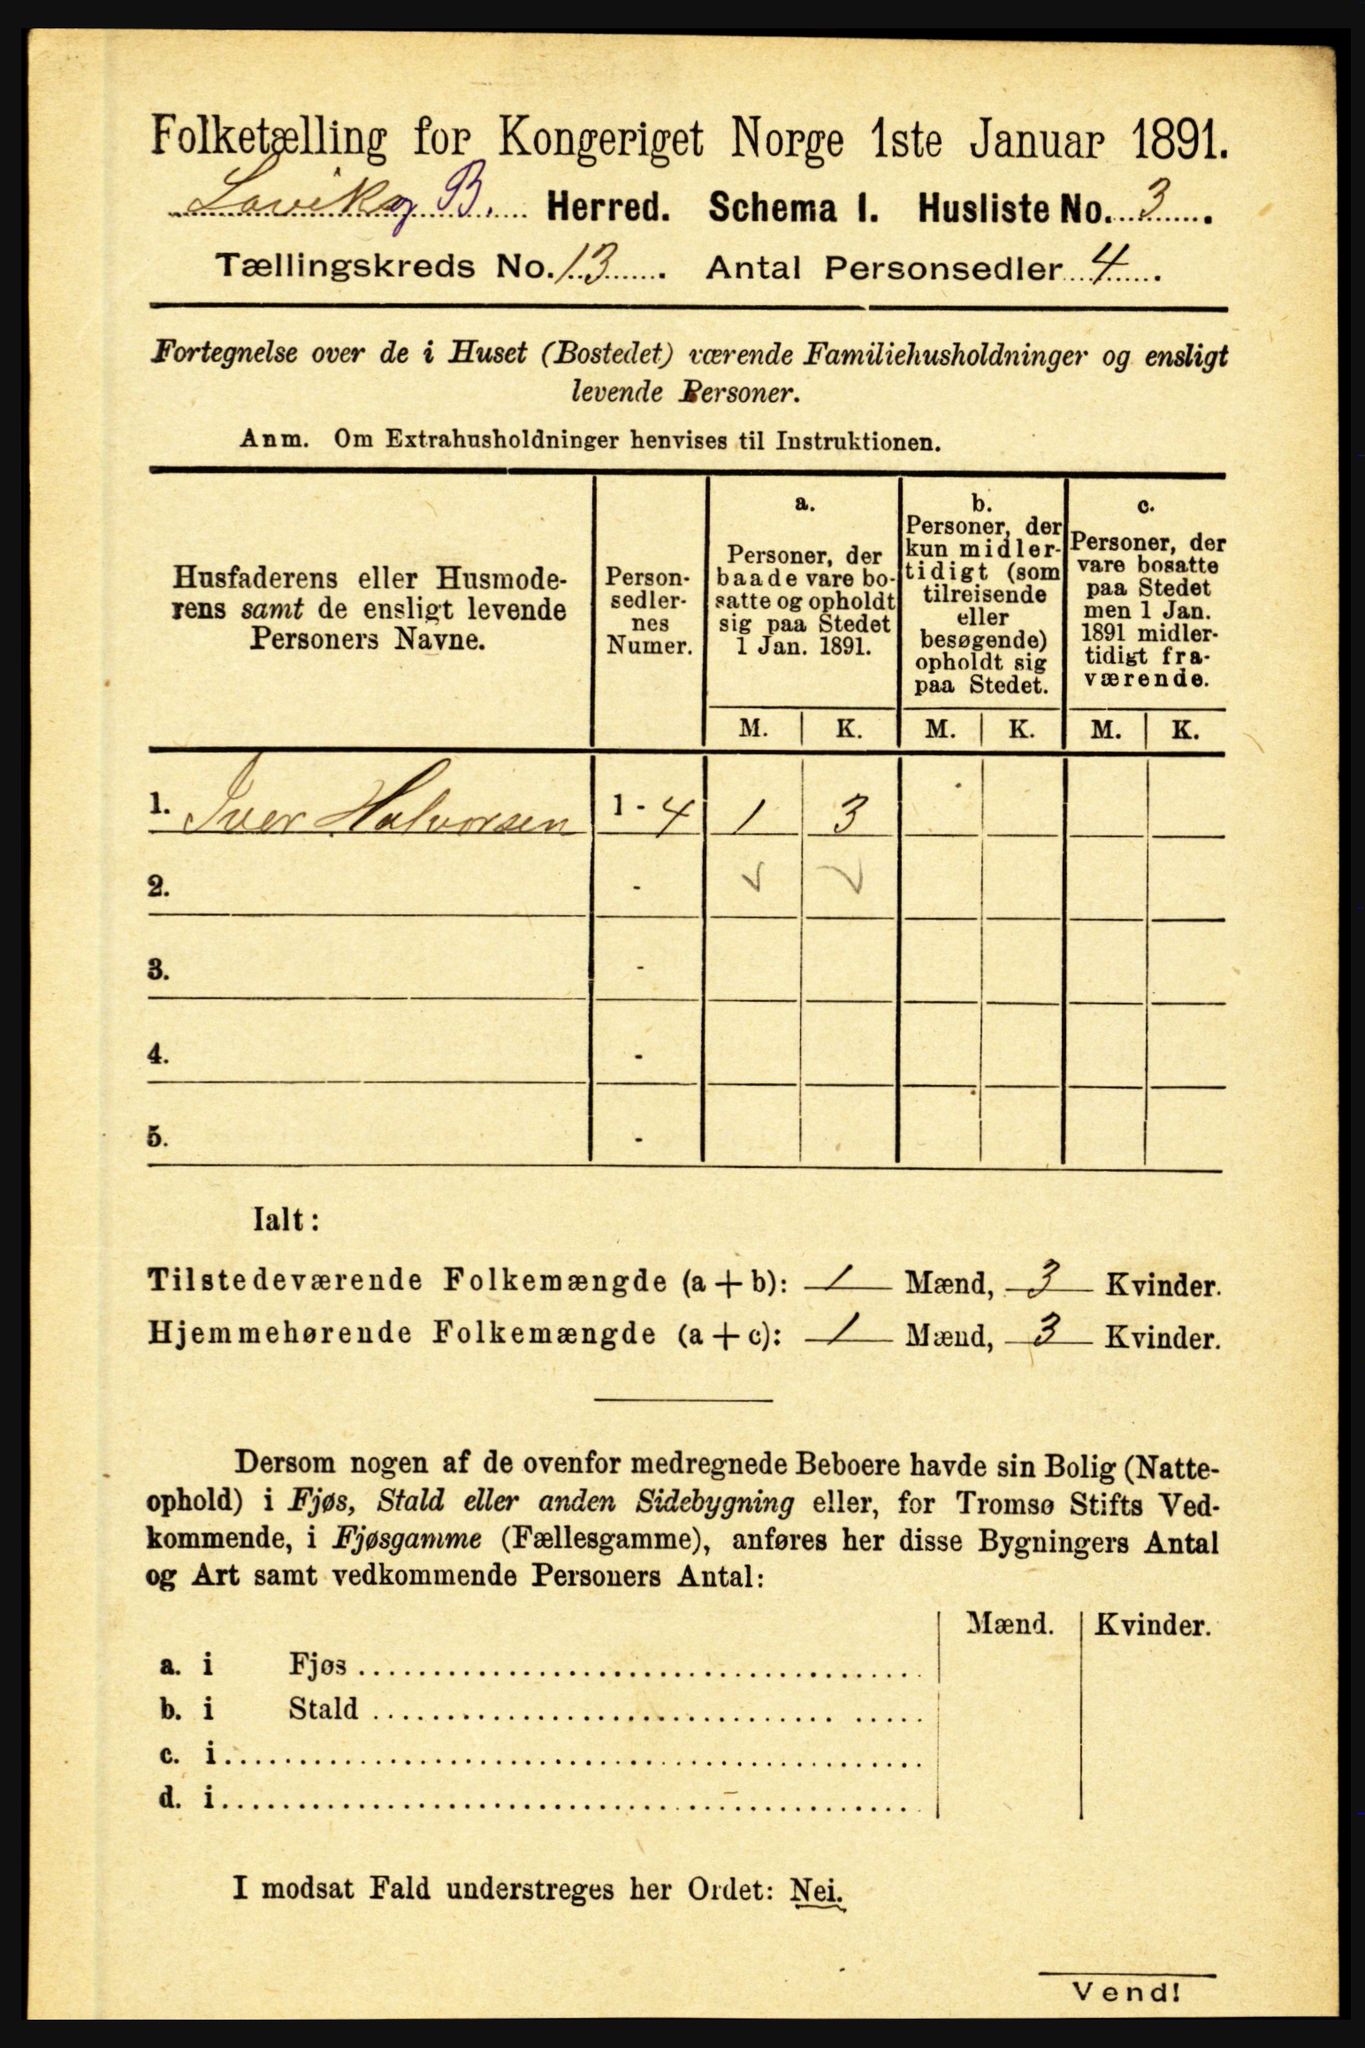 Folketælling for Kongeriget Norge 1ste Januar 1891.
Lavik og B. Herred. Schema 1. Husliste No. 3.
Tællingskreds No. 13. Antal Personsedler 4.
Fortegnelse over de i Huset (Bostedet) værende Familiehusholdninger og ensligt
levende Personer.
Anm. Om Extrahusholdninger henvises til Instruktionen.
Husfaderens eller Husmode-
rens samt de ensligt levende
Personers Navne.
Person-
sedler-
nes
Numer.
a.
Personer, der
baade vare bo-
satte og opholdt
sig paa Stedet
1 Jan. 1891.
b.
Personer, der
kun midler-
tidigt (som
tilreisende
eller
besøgende)
opholdt sig
paa Stedet.
c.
Personer, der
vare bosatte
paa Stedet
men 1 Jan.
1891 midler-
tidigt fra-
værende.
M. K. M. K. M. K.
1. Iver Halvorsen 1 - 4 1 3
2. -
3. -
4. -
5. -
Ialt:
Tilstedeværende Folkemængde (a + b): 1 Mænd, 3 Kvinder.
Hjemmehørende Folkemængde (a + c): 1 Mænd, 3 Kvinder.
Dersom nogen af de ovenfor medregnede Beboere havde sin Bolig (Natte-
ophold) i Fjøs, Stald eller anden Sidebygning eller, for Tromsø Stifts Ved-
kommende, i Fjøsgamme (Fællesgamme), anføres her disse Bygningers Antal
og Art samt vedkommende Personers Antal:
Mænd. Kvinder.
a. i Fjøs
b. i Stald
c. i
d. i
I modsat Fald understreges her Ordet: Nei.
Vend!